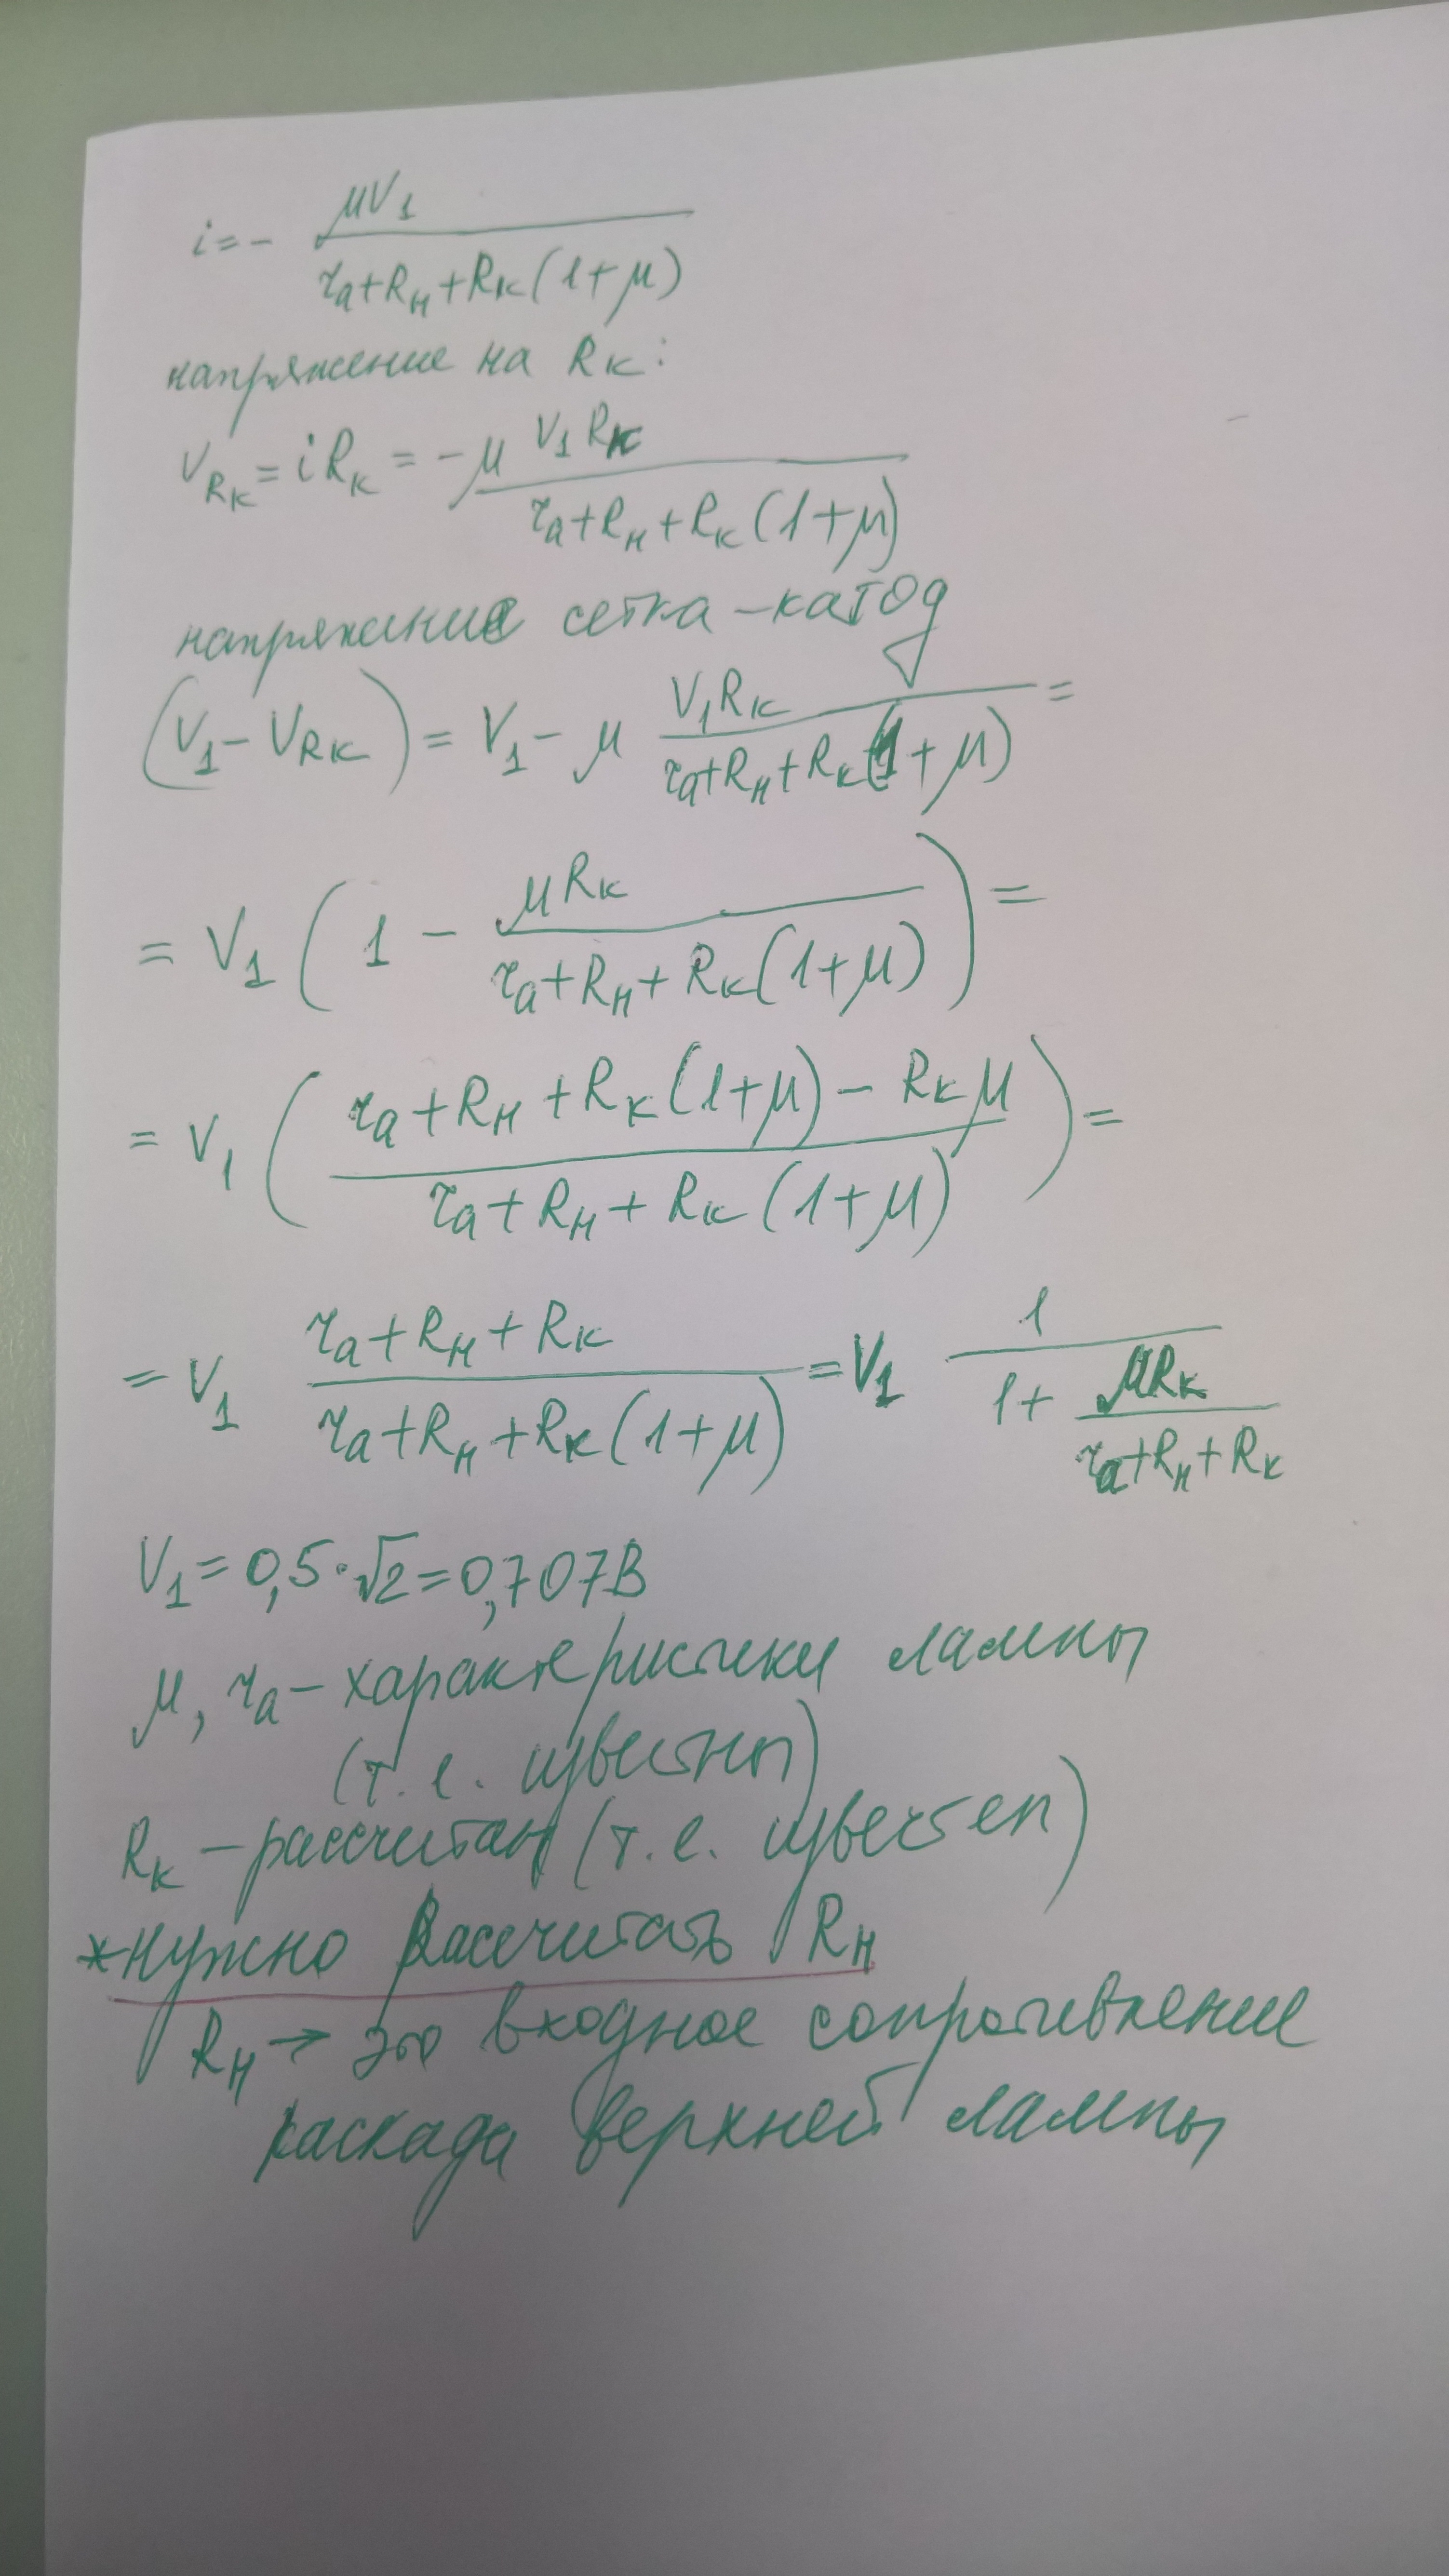 i = - μV₁ / (rₐ + Rн + Rк(1+μ))
напряжение на Rк:
V_Rк = i Rк = - μ V₁Rк / (rₐ + Rн + Rк(1+μ))
напряжение сетка-катод
(V₁ - V_Rк) = V₁ - μ V₁Rк / (rₐ + Rн + Rк(1+μ)) =
= V₁ (1 - μRк / (rₐ + Rн + Rк(1+μ))) =
= V₁ ((rₐ + Rн + Rк(1+μ) - Rкμ) / (rₐ + Rн + Rк(1+μ))) =
= V₁ (rₐ + Rн + Rк) / (rₐ + Rн + Rк(1+μ)) = V₁ 1 / (1 + μRк / (rₐ + Rн + Rк))
V₁ = 0,5·√2 = 0,707В
μ, rₐ - характеристики лампы
(т.е. известны)
Rк - рассчитан (т.е. известен)
*нужно рассчитать Rн
Rн → это входное сопротивление
каскада верхней лампы